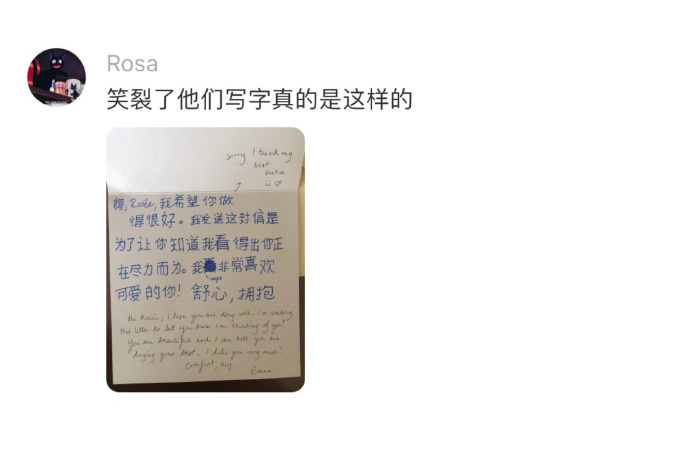 Rosa
笑裂了他们写字真的是这样的
sorry I tried my
best
haha
嗨, Rosie, 我希望你做
得很好。我发送这封信是
为了让你知道我看得出你正
在尽力而为。我非常喜欢
oops
可爱的你! 舒心, 拥抱
Hi Rosie, I hope you are doing well. I'm sending
this letter to let you know I'm thinking of you!
You are beautiful and I can tell you are
trying your best. I like you very much!
Comfort, hug.
Emma.